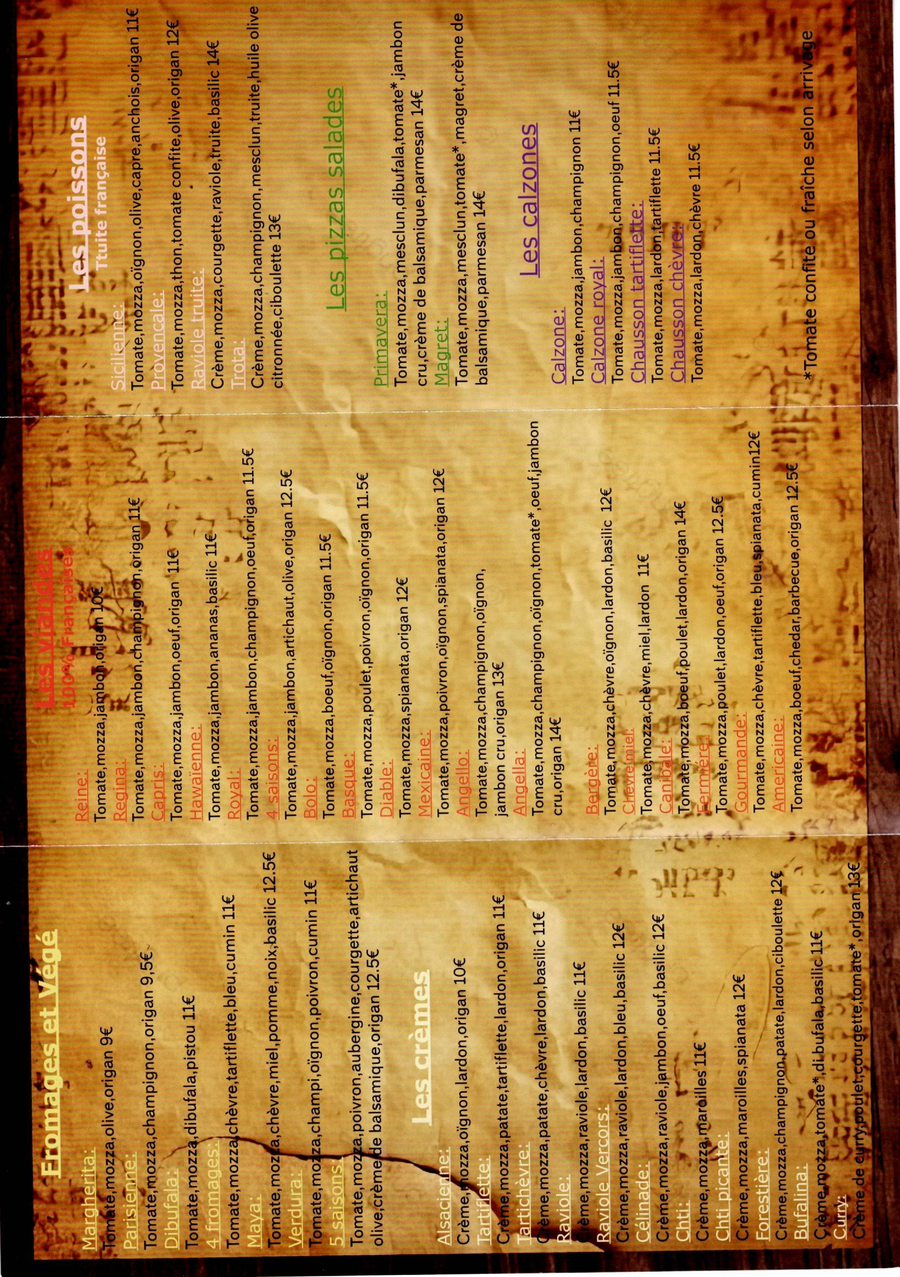 Fromages et Végé
Margherita:
Tomate,mozza,olive,origan 9€
Parisienne:
Tomate,mozza,champignon,origan 9,5€
Dibufala:
Tomate,mozza,dibufala,pistou 11€
4 fromages:
Tomate,mozza,chèvre,tartiflette,bleu,cumin 11€
Maya:
Tomate,mozza,chèvre,miel,pomme,noix,basilic 12.5€
Verdura:
Tomate,mozza,champi,oïgnon,poivron,cumin 11€
5 saisons:
Tomate,mozza,poivron,aubergine,courgette,artichaut
olive,crème de balsamique,origan 12.5€
Les crèmes
Alsacienne:
Crème,mozza,oïgnon,lardon,origan 10€
Tartiflette:
Crème,mozza,patate,tartiflette,lardon,origan 11€
Tartichèvre:
Crème,mozza,patate,chèvre,lardon,basilic 11€
Raviole:
Crème,mozza,raviole,basilic 11€
Raviole Vercors:
Crème,mozza,raviole,lardon,bleu,basilic 12€
Célinade:
Crème,mozza,raviole,jambon,oeuf,basilic 12€
Chti:
Crème,mozza,maroilles 11€
Chti picante:
Crème,mozza,maroilles,spianata 12€
Forestière:
Crème,mozza,champignon,patate,lardon,ciboulette 12€
Bufalina:
Crème,mozza,tomate*,di bufala,basilic 11€
Curry:
Crème de curry,poulet,courgette,tomate*,origan 13€
Les viandes
100% Française:
Reine:
Tomate,mozza,jambon,origan 10€
Regina:
Tomate,mozza,jambon,champignon,origan 11€
Capris:
Tomate,mozza,jambon,oeuf,origan 11€
Hawaïenne:
Tomate,mozza,jambon,ananas,basilic 11€
Royal:
Tomate,mozza,jambon,champignon,oeuf,origan 11.5€
4 saisons:
Tomate,mozza,jambon,artichaut,olive,origan 12.5€
Bolo:
Tomate,mozza,boeuf,oïgnon,origan 11.5€
Basque:
Tomate,mozza,poulet,poivron,oïgnon,origan 11.5€
Diable:
Tomate,mozza,spianata,origan 12€
Mexicaine:
Tomate,mozza,poivron,oïgnon,spianata,origan 12€
Angello:
Tomate,mozza,champignon,oïgnon,
jambon cru,origan 13€
Angella:
Tomate,mozza,champignon,oïgnon,tomate*,oeuf,jambon
cru,origan 14€
Bergère:
Tomate,mozza,chèvre,oïgnon,lardon,basilic 12€
Chèvre miel:
Tomate,mozza,chèvre,miel,lardon 11€
Canibale:
Tomate,mozza,boeuf,poulet,lardon,origan 14€
Fermière:
Tomate,mozza,poulet,lardon,oeuf,origan 12.5€
Gourmande:
Tomate,mozza,chèvre,tartiflette,bleu,spianata,cumin12€
Américaine:
Tomate,mozza,boeuf,chedar,barbecue,origan 12.5€
Les poissons
Ttuite française
Sicilienne:
Tomate,mozza,oïgnon,olive,capre,anchois,origan 11€
Provencale:
Tomate,mozza,thon,tomate confite,olive,origan 12€
Raviole truite:
Crème,mozza,courgette,raviole,truite,basilic 14€
Trota:
Crème,mozza,champignon,mesclun,truite,huile olive
citronnée,ciboulette 13€
Les pizzas salades
Primavera:
Tomate,mozza,mesclun,dibufala,tomate*,jambon
cru,crème de balsamique,parmesan 14€
Magret:
Tomate,mozza,mesclun,tomate*,magret,crème de
balsamique,parmesan 14€
Les calzones
Calzone:
Tomate,mozza,jambon,champignon 11€
Calzone royal:
Tomate,mozza,jambon,champignon,oeuf 11.5€
Chausson tartiflette:
Tomate,mozza,lardon,tartiflette 11.5€
Chausson chèvre:
Tomate,mozzza,lardon,chèvre 11.5€
*Tomate confite ou fraîche selon arrivage